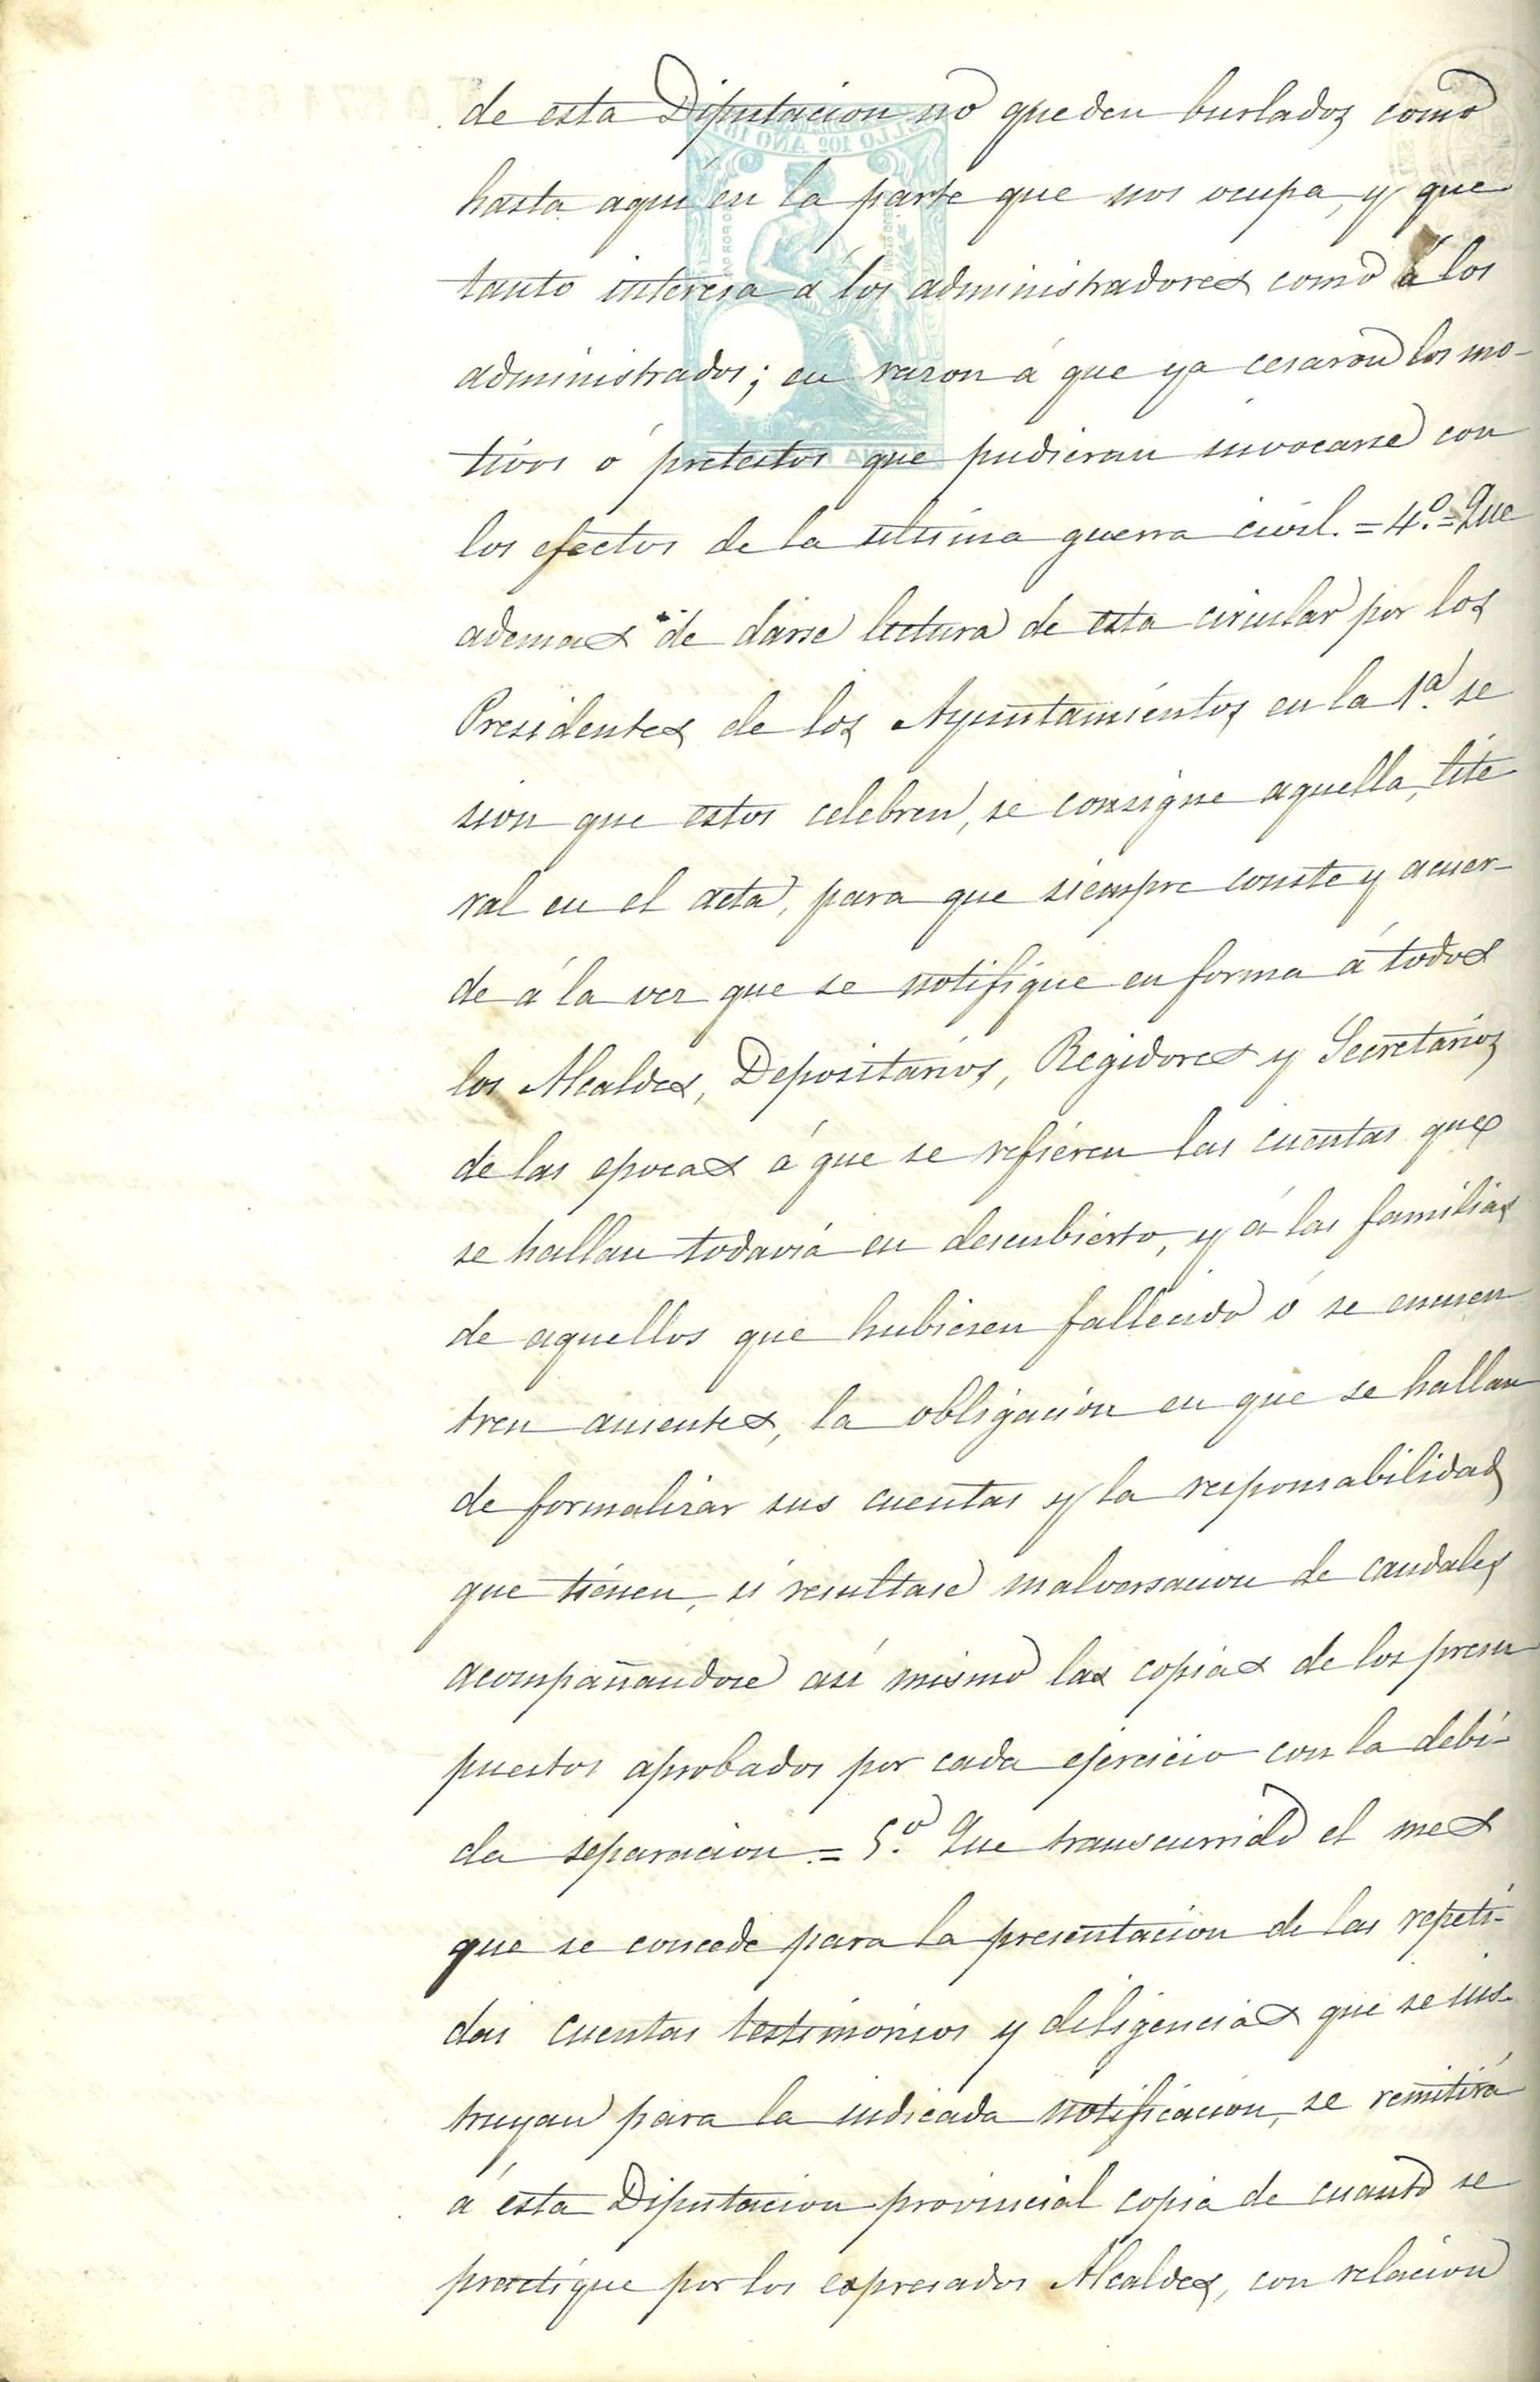 de esta Diputacion no queden burlados como
hasta aquí en la parte que nos ocupa, y que
tanto interesa á los administradores como á los
administrados; en razon á que ya cesaron los mo-
tivos ó pretestos que pudieran invocarse con
los efectos de la ultima guerra civil. = 4.º = Que
ademas de darse lectura de esta circular por los
Presidentes de los Ayuntamientos en la 1.ª se
sion que estos celebren, se consigne aquella, lite
ral en el acta, para que siempre conste y acuer-
de á la vez que se notifique en forma á todos
los Alcaldes, Depositarios, Regidores y Secretarios
de las epocas á que se refieren las cuentas que
se hallan todavia en descubierto, y á las familias
de aquellos que hubiesen fallecido ó se encuen
tren ausentes, la obligacion en que se hallan
de formalizar sus cuentas y la responsabilidad
que tienen, si resultase malversacion de caudales
acompañandose así mismo las copias de los presu
puestos aprobados por cada ejercicio con la debi-
da separacion. = 5.º Que transcurrido el mes
que se concede para la presentacion de las repeti-
das cuentas testimonios y diligencias que se ins-
truyan para la indicada notificacion, se remitirá
á esta Diputacion provincial copia de cuanto se
practique por los expresados Alcaldes, con relacion